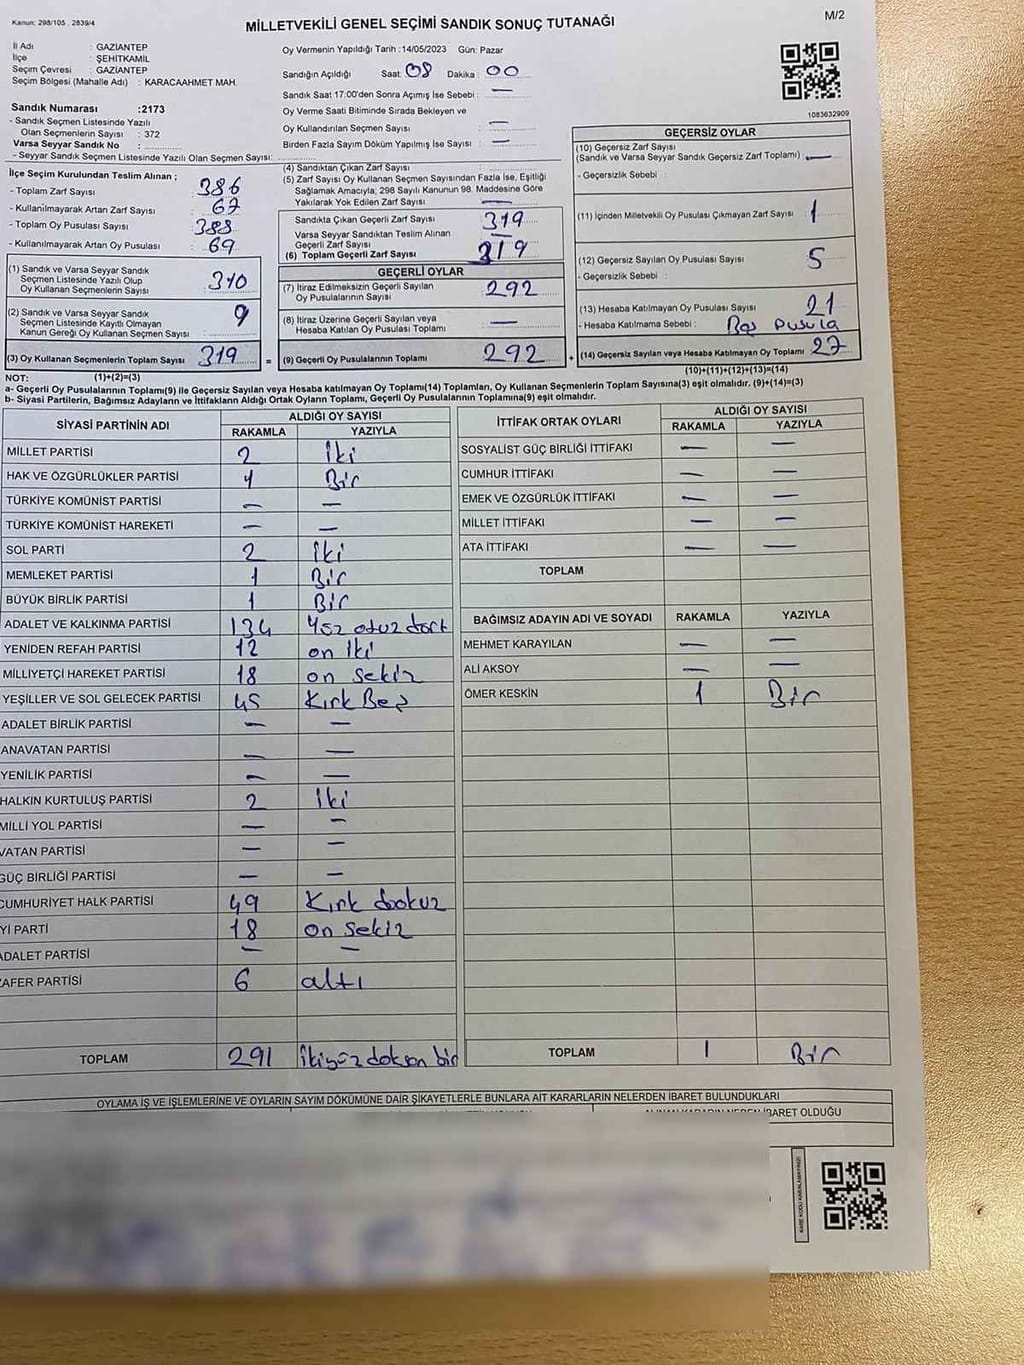 Kanun: 298/105 , 2839/4
MİLLETVEKİLİ GENEL SEÇİMİ SANDIK SONUÇ TUTANAĞI
M/2
İl Adı : GAZİANTEP
İlçe : ŞEHİTKAMİL
Seçim Çevresi : GAZİANTEP
Seçim Bölgesi (Mahalle Adı) : KARACAAHMET MAH.
Sandık Numarası :2173
- Sandık Seçmen Listesinde Yazılı
Olan Seçmenlerin Sayısı : 372
Varsa Seyyar Sandık No :
- Seyyar Sandık Seçmen Listesinde Yazılı Olan Seçmen Sayısı:
Oy Vermenin Yapıldığı Tarih :14/05/2023 Gün: Pazar
Sandığın Açıldığı Saat: 08 Dakika : 00
Sandık Saat 17:00'den Sonra Açımış İse Sebebi : —
Oy Verme Saati Bitiminde Sırada Bekleyen ve
Oy Kullandırılan Seçmen Sayısı : —
Birden Fazla Sayım Döküm Yapılmış İse Sayısı : —
1083632909
İlçe Seçim Kurulundan Teslim Alınan ;
- Toplam Zarf Sayısı : 386
- Kullanılmayarak Artan Zarf Sayısı : 67
- Toplam Oy Pusulası Sayısı : 388
- Kullanılmayarak Artan Oy Pusulası : 69
(1) Sandık ve Varsa Seyyar Sandık
Seçmen Listesinde Yazılı Olup
Oy Kullanan Seçmenlerin Sayısı : 310
(2) Sandık ve Varsa Seyyar Sandık
Seçmen Listesinde Kayıtlı Olmayan
Kanun Gereği Oy Kullanan Seçmen Sayısı : 9
(3) Oy Kullanan Seçmenlerin Toplam Sayısı : 319 =
(1)+(2)=(3)
(4) Sandıktan Çıkan Zarf Sayısı :
(5) Zarf Sayısı Oy Kullanan Seçmen Sayısından Fazla İse, Eşitliği
Sağlamak Amacıyla; 298 Sayılı Kanunun 98. Maddesine Göre
Yakılarak Yok Edilen Zarf Sayısı : —
Sandıkta Çıkan Geçerli Zarf Sayısı : 319
Varsa Seyyar Sandıktan Teslim Alınan
Geçerli Zarf Sayısı : —
(6) Toplam Geçerli Zarf Sayısı : 319
GEÇERLİ OYLAR
(7) İtiraz Edilmeksizin Geçerli Sayılan
Oy Pusulalarının Sayısı : 292
(8) İtiraz Üzerine Geçerli Sayılan veya
Hesaba Katılan Oy Pusulası Toplamı : —
(9) Geçerli Oy Pusulalarının Toplamı : 292 +
GEÇERSİZ OYLAR
(10) Geçersiz Zarf Sayısı
(Sandık ve Varsa Seyyar Sandık Geçersiz Zarf Toplamı) : —
- Geçersizlik Sebebi :
(11) İçinden Milletvekili Oy Pusulası Çıkmayan Zarf Sayısı : 1
(12) Geçersiz Sayılan Oy Pusulası Sayısı : 5
- Geçersizlik Sebebi :
(13) Hesaba Katılmayan Oy Pusulası Sayısı : 21
- Hesaba Katılmama Sebebi : Boş Pusula
(14) Geçersiz Sayılan veya Hesaba Katılmayan Oy Toplamı : 27
(10)+(11)+(12)+(13)=(14)
NOT:
a- Geçerli Oy Pusulalarının Toplamı(9) ile Geçersiz Sayılan veya Hesaba katılmayan Oy Toplamı(14) Toplamları, Oy Kullanan Seçmenlerin Toplam Sayısına(3) eşit olmalıdır. (9)+(14)=(3)
b- Siyasi Partilerin, Bağımsız Adayların ve İttifakların Aldığı Oyların Toplamı, Geçerli Oy Pusulalarının Toplamına(9) eşit olmalıdır.
SİYASİ PARTİNİN ADI ALDIĞI OY SAYISI
RAKAMLA YAZIYLA
MİLLET PARTİSİ 2 İki
HAK VE ÖZGÜRLÜKLER PARTİSİ 1 Bir
TÜRKİYE KOMÜNİST PARTİSİ — —
TÜRKİYE KOMÜNİST HAREKETİ — —
SOL PARTİ 2 iki
MEMLEKET PARTİSİ 1 Bir
BÜYÜK BİRLİK PARTİSİ 1 Bir
ADALET VE KALKINMA PARTİSİ 134 Yüz otuz dört
YENİDEN REFAH PARTİSİ 12 on iki
MİLLİYETÇİ HAREKET PARTİSİ 18 on sekiz
YEŞİLLER VE SOL GELECEK PARTİSİ 45 Kırk Beş
ADALET BİRLİK PARTİSİ — —
ANAVATAN PARTİSİ — —
YENİLİK PARTİSİ — —
HALKIN KURTULUŞ PARTİSİ 2 İki
MİLLİ YOL PARTİSİ — —
VATAN PARTİSİ — —
GÜÇ BİRLİĞİ PARTİSİ — —
CUMHURİYET HALK PARTİSİ 49 Kırk dokuz
Yİ PARTİ 18 on sekiz
ADALET PARTİSİ — —
ZAFER PARTİSİ 6 altı
TOPLAM 291 İkiyüz doksan bir
İTTİFAK ORTAK OYLARI ALDIĞI OY SAYISI
RAKAMLA YAZIYLA
SOSYALİST GÜÇ BİRLİĞİ İTTİFAKI — —
CUMHUR İTTİFAKI — —
EMEK VE ÖZGÜRLÜK İTTİFAKI — —
MİLLET İTTİFAKI — —
ATA İTTİFAKI — —
TOPLAM
BAĞIMSIZ ADAYIN ADI VE SOYADI RAKAMLA YAZIYLA
MEHMET KARAYILAN — —
ALİ AKSOY — —
ÖMER KESKİN 1 Bir
TOPLAM 1 Bir
OYLAMA İŞ VE İŞLEMLERİNE VE OYLARIN SAYIM DÖKÜMÜNE DAİR ŞİKAYETLERLE BUNLARA AİT KARARLARIN NELERDEN İBARET BULUNDUKLARI
İBARET OLDUĞU
KARE KODU KARALAMAYINIZ!